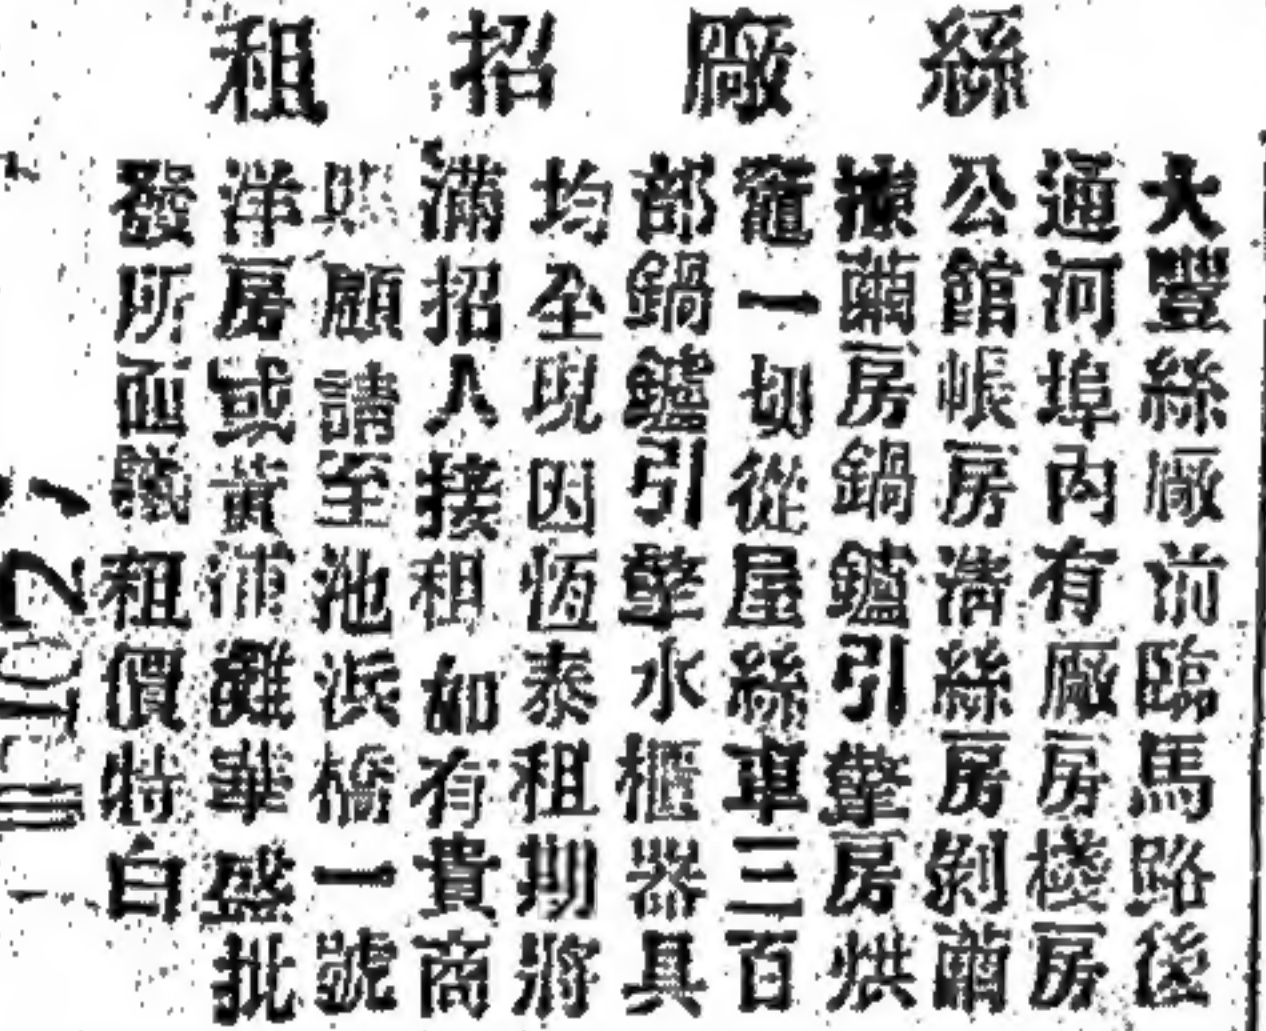 絲廠招租
大豐絲廠前臨馬路後
通河埠內有廠房棧房
公館帳房清絲房剝繭
據繭房鍋鑪引擎房烘
竈一切從屋絲車三百
部鍋鑪引擎水櫃器具
均全現因恆泰租期將
滿招人接租如有貴商
照顧請至池浜橋一號
洋房或黃浦灘華盛批
發所面議租價特白